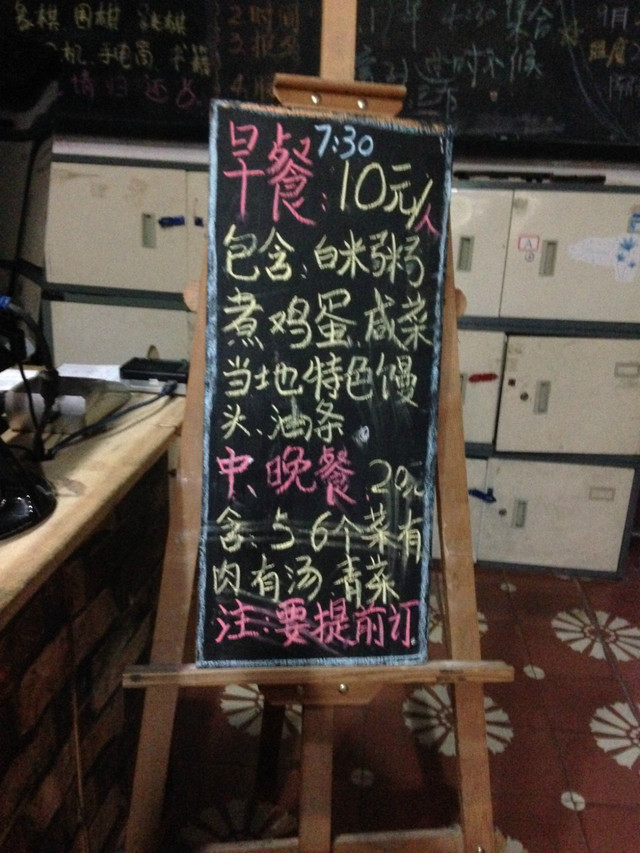 象棋.围棋.跳棋
机.手电筒.书籍
情归还
2.时间
3.报名
集合
9月
早餐:7:30
10元/人
包含:白米粥
煮鸡蛋.咸菜
当地特色馒
头、油条
中、晚餐:20元
含:5 6个菜有
肉有汤.青菜
注:要提前订
A